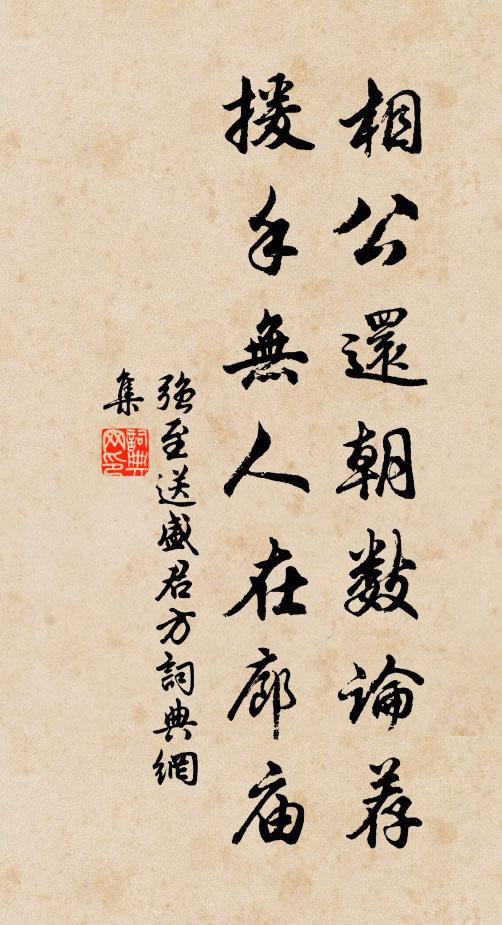 相公還朝数論荐
援手無人在廊庙
强至送盛君方詞典網
集
詞典网印